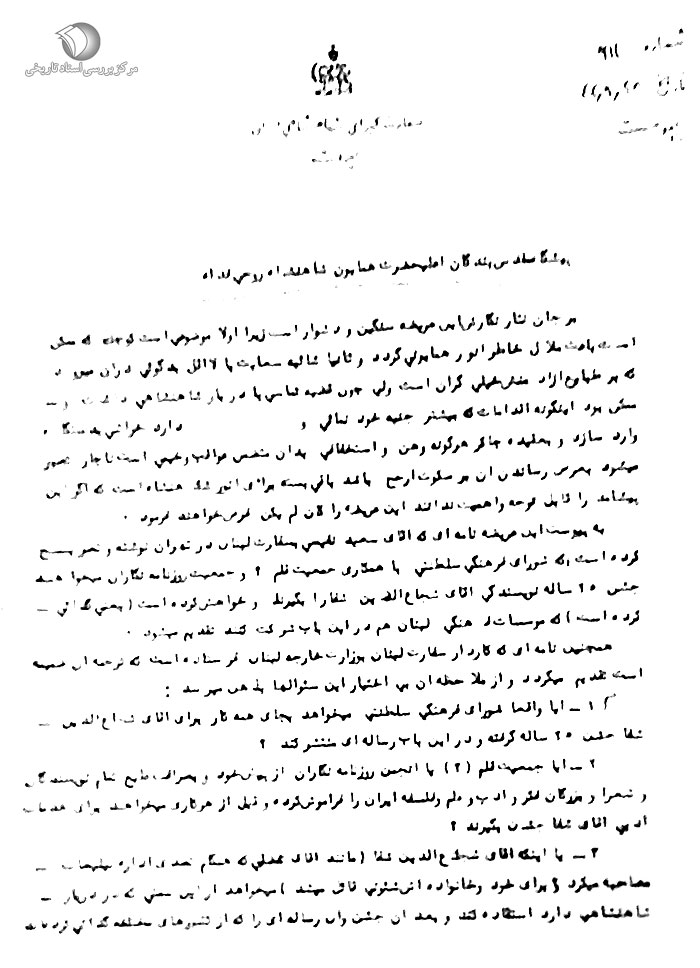 مرکز بررسی اسناد تاریخی
شماره ۶۱۱
تاریخ
پیوست
سفارت کبرای شاهنشاهی ایران
پیشگاه مقدس بندگان اعلیحضرت همایون شاهنشاه روحی فداه
بر جان نثار نگارش این عریضه سنگین و دشوار است زیرا اولا موضوعی است کوچک که ممکن
است باعث ملال خاطر انور همایونی گردد و ثانیا شائبه سعایت یا لااقل بدگوئی در آن میرود
که بر طبایع آزاد منش خیلی گران است ولی چون قضیه تماسی با دربار شاهنشاهی داشت و
ممکن بود اینگونه اقدامات که بیشتر جنبه خود نمائی و دارد خراشی بدستگاه
وارد سازد و بعقیده چاکر هرگونه وهن و استخفافی بدان متضمن عواقب وخیمی است ناچار
میشود بعرض رساندن آن بر سکوت ارجح باشد باقی بسته برای انور شاهنشاه است که اگر این
پیشامد را قابل توجه و اهمیت ندانند این عریضه را کان لم یکن فرض خواهند فرمود .
به پیوست این عریضه نامه ای که آقای سعید نفیسی بسفارت لبنان در تهران نوشته و تصریح
کرده است که شورای فرهنگی سلطنتی با همکاری جمعیت قلم ؟ و جمعیت روزنامه نگاران میخواهند
جشن ۲۵ ساله نویسندگی آقای شجاع الدین شفا را بگیرند و خواهش کرده است ( یعنی گدائی –
کرده است ) که موسسات فرهنگی لبنان هم در این باب شرکت کنند تقدیم میشود .
همچنین نامه ای که کاردار سفارت لبنان بوزارت خارجه لبنان فرستاده است که ترجمه آن ضمیمه
است تقدیم میگردد و از ملاحظه آن بی اختیار این سئوالها بذهن میرسد :
۱ – آیا واقعا شورای فرهنگی سلطنتی میخواهد بجای همه کار برای آقای شجاع الدین –
شفا جشن ۲۵ ساله گرفته و در این باب رساله ای منتشر کند ؟
۲ – آیا جمعیت قلم (؟) یا انجمن روزنامه نگاران از پیش خود و بصرافت طبع تمام نویسندگان
و شعرا و بزرگان فکر و ادب و علم و فلسفه ایران را فراموش کرده و قبل از هر کاری میخواهند برای خدمات
ادبی آقای شفا جشن بگیرند ؟
۳ – یا اینکه آقای شجاع الدین شفا ( مانند آقای که هنگام تصدی اداره تبلیغات –
مصاحبه میکرد و برای خود و خانواده اش شئونی قائل میشد ) میخواهد از این سمتی که در دربار –
شاهنشاهی دارد استفاده کند و بعد آن جشن و آن رساله ای را که از کشورهای مختلفه گدائی کرده اند